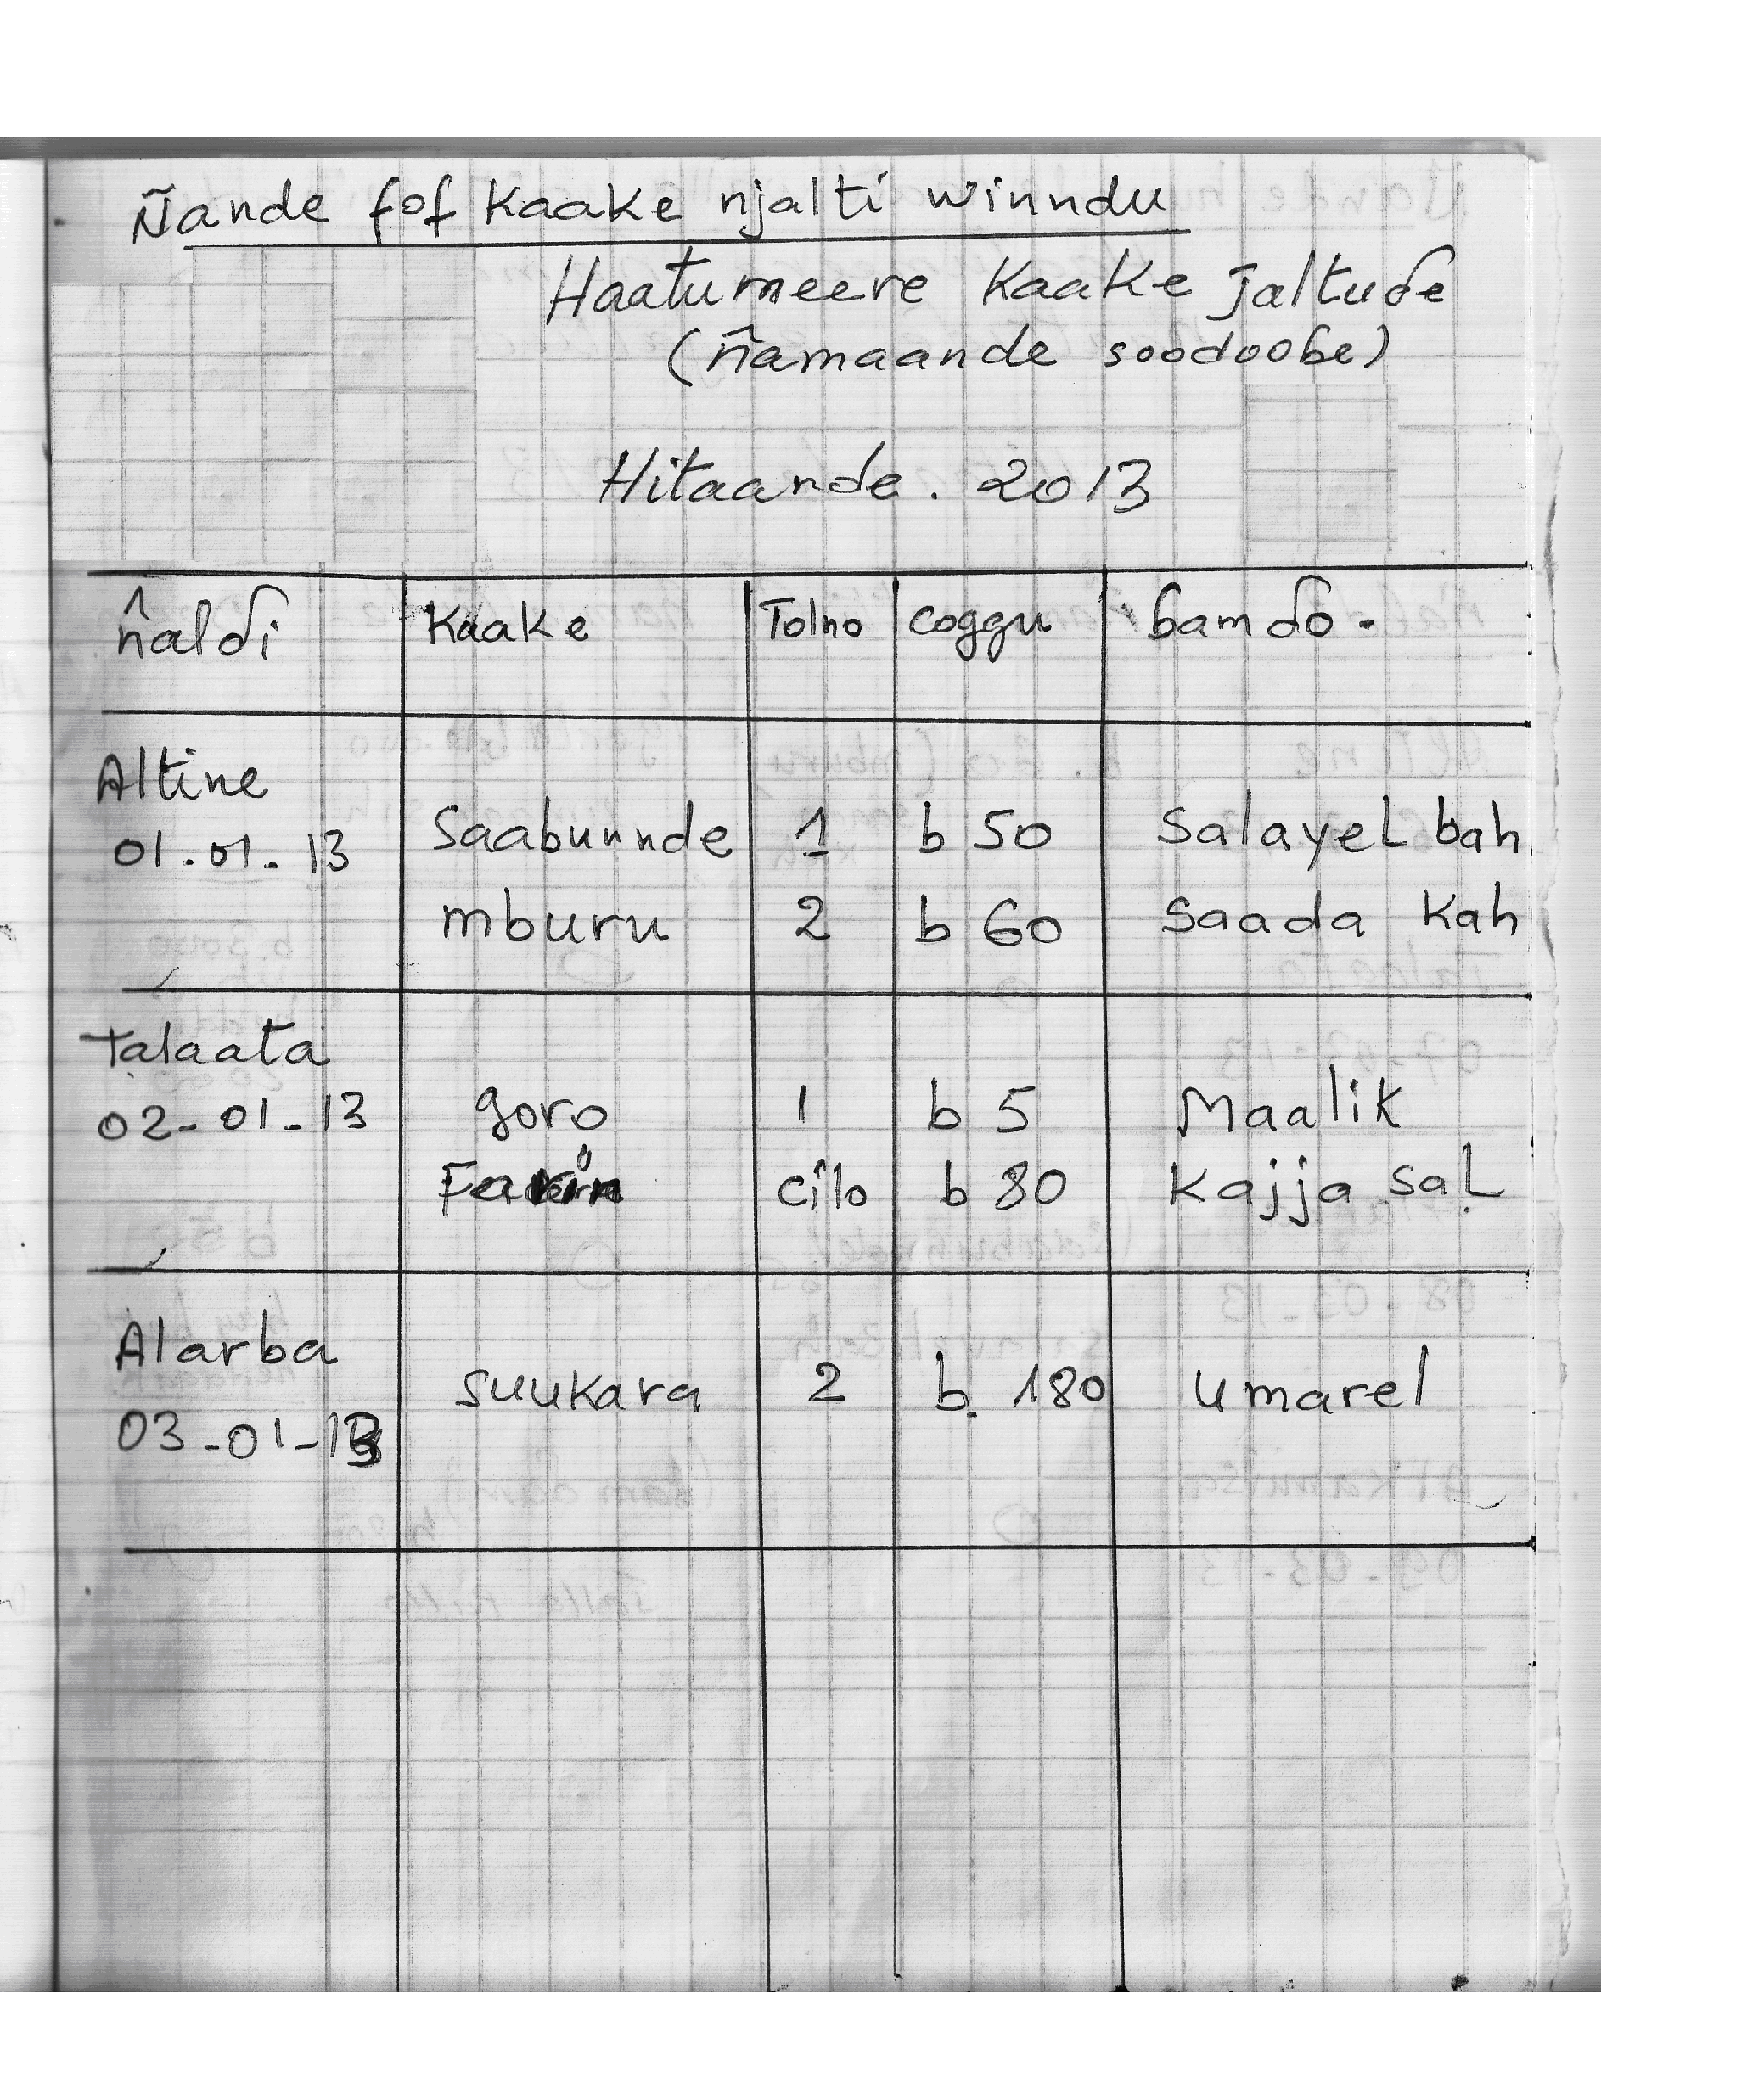 Ñande fof Kaake njalti winndu
Haatumeere Kaake jaltuɗe
(ñamaande soodooɓe)
Hitaande. 2013
ñalɗi Kaake Tolno coggu ɓamɗo.
Altine
01.01.13 Saabunnde 1 b 50 Salayel bah
mburu 2 b 60 Saada Kah
Talaata
02-01-13 goro 1 b 5 Maalik
Farin cilo b 80 Kajja Sal
Alarba
03-01-13 Suukara 2 b. 180 Umarel